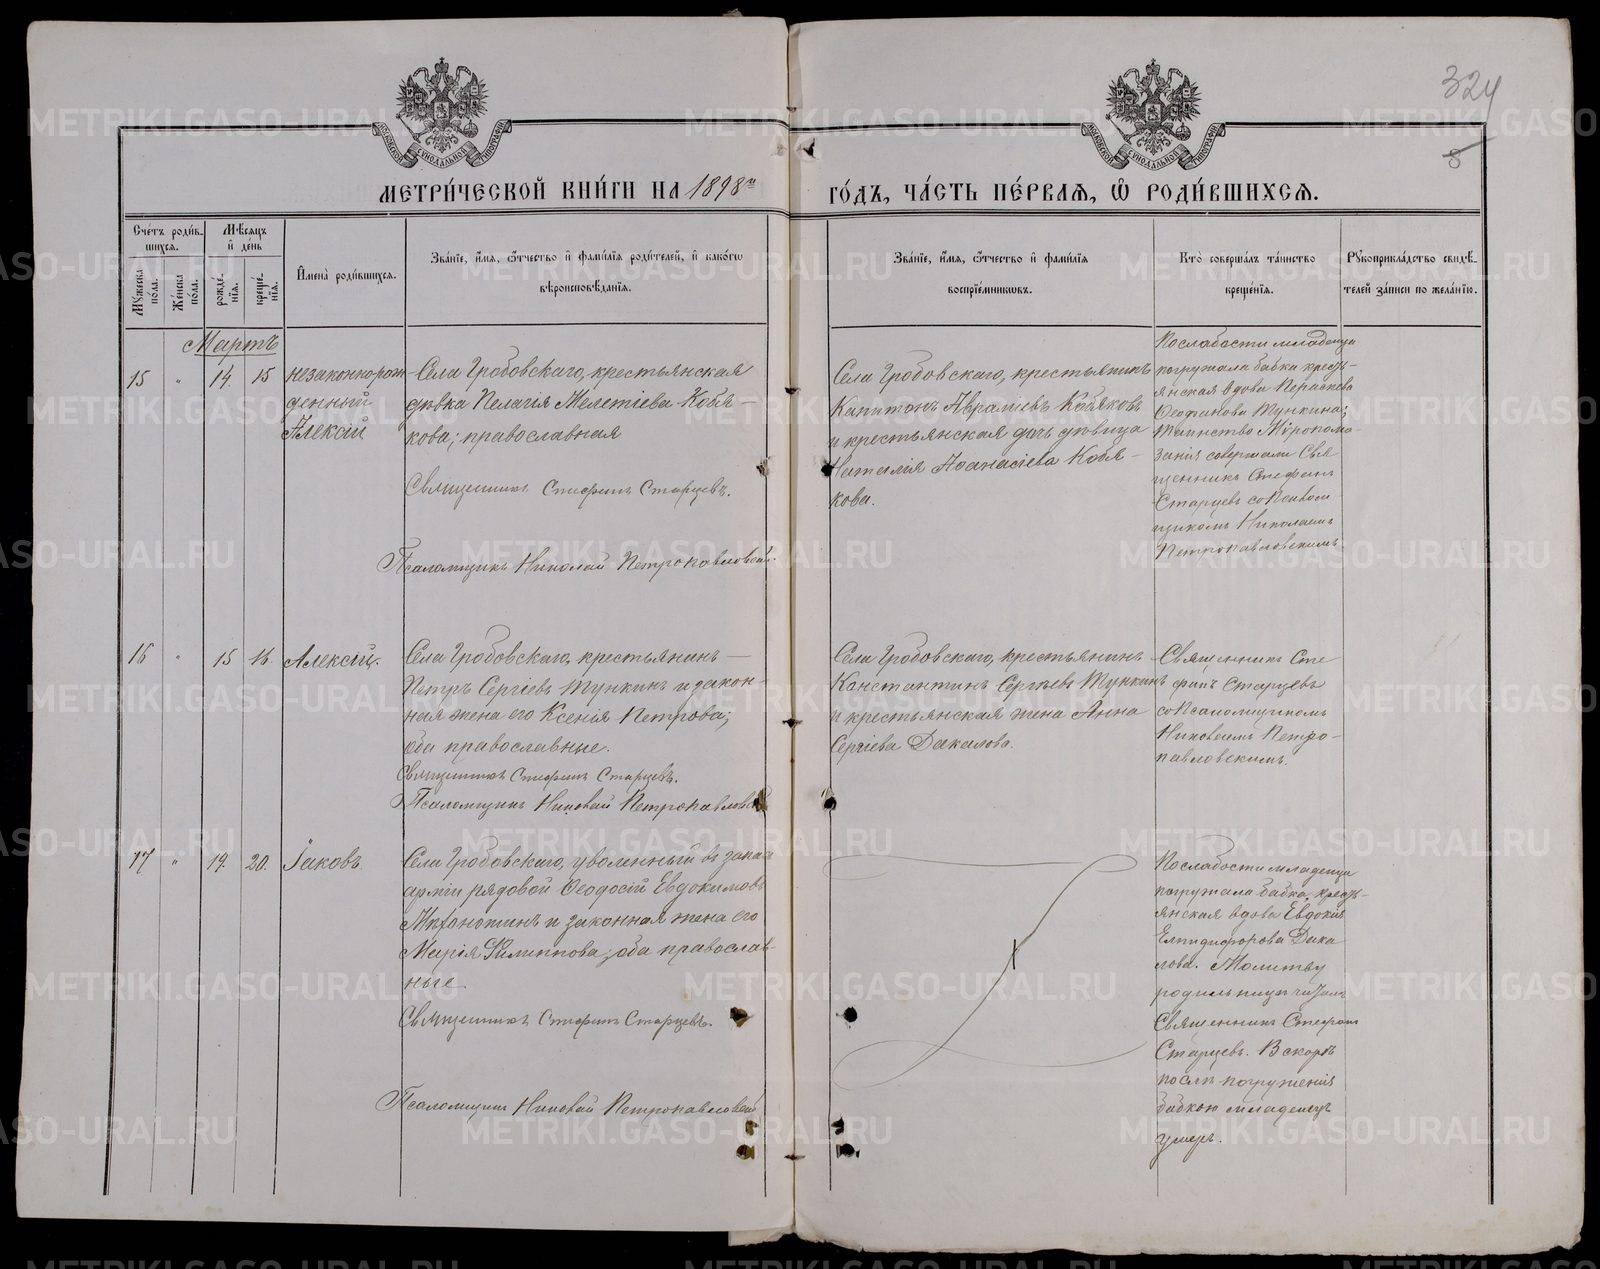 324
8
МОСКОВСКОЙ СѴНОДАЛЬНОЙ ТИПОГРАФІИ
МОСКОВСКОЙ СѴНОДАЛЬНОЙ ТИПОГРАФІИ
МЕТРИ́ЧЕСКОЙ КНИ́ГИ НА 1898й ГО́ДЪ, ЧА́СТЬ ПЕ́РВАЯ, Ѿ РОДИ́ВШИХСЯ.
Сче́тъ роди́в-
шихся.
Мꙋ́жеска по́ла.
Же́нска по́ла.
Мѣ́сяцъ
и҆ де́нь
рожде́-
нїѧ.
креще́-
нїѧ.
И҆мена̀ роди́вшихся.
Зва́нїе, и҆́мя, ѻ҆́тчество и҆ фами́лїя роди́телей, и҆ како́гѡ
вѣроисповѣ́данїя.
Зва́нїе, и҆́мя, ѻ҆́тчество и҆ фами́лїя
воспрїе́мникѡвъ.
Кто̀ соверша́лъ та́инство
креще́нїя.
Рꙋкоприкла́дство свидѣ́-
телей за́писи по жела́нїю.
Мартъ
15 " 14. 15
незаконнорож-
денный
Алексій
Села Гробовскаго, крестьянская
дѣвка Пелагія Мелетіева Кобя-
кова; православная
Священникъ Стефанъ Старцевъ.
Псаломщикъ Николай Петропавловскій.
Села Гробовскаго, крестьянинъ
Капитонъ Авраміевъ Кобяковъ
и крестьянская дочь дѣвица
Наталія Аѳанасіева Кобя-
кова.
По слабости младенца
погружала бабка кресть-
янская вдова Параскева
Ѳеофанова Тункина;
таинство Мѵропома-
занія совершали Свя-
щенникъ Стефанъ
Старцевъ со Псалом
щикомъ Николаемъ
Петропавловскимъ.
16 " 15 16. Алексій.
Села Гробовскаго, крестьянинъ
Петръ Сергіевъ Тункинъ и закон-
ная жена его Ксенія Петрова;
оба православные.
Священникъ Стефанъ Старцевъ.
Псаломщикъ Николай Петропавловскій
Села Гробовскаго, крестьянинъ
Константинъ Сергѣевъ Тункинъ
и крестьянская жена Анна
Сергіева Дакалова.
Священникъ Сте
фанъ Старцевъ
со Псаломщикомъ
Николаемъ Петро-
павловскимъ.
17 " 19. 20. Іаковъ
Села Гробовскаго, уволенный въ запасъ
арміи рядовой Ѳеодосій Евдокимовъ
и законная жена его
Марія Филиппова; оба православ-
ные
Священникъ Стефанъ Старцевъ.
Псаломщикъ Николай Петропавловскій
По слабости младенца
погружала бабка, кресть-
янская вдова Евдокія
Елпидифорова Дака
лова. Молитву
родильницѣ читалъ
Священникъ Стефанъ
Старцевъ. Вскорѣ
послѣ погруженія
бабкою младенецъ
умеръ.
METRIKI.GASO-URAL.RU